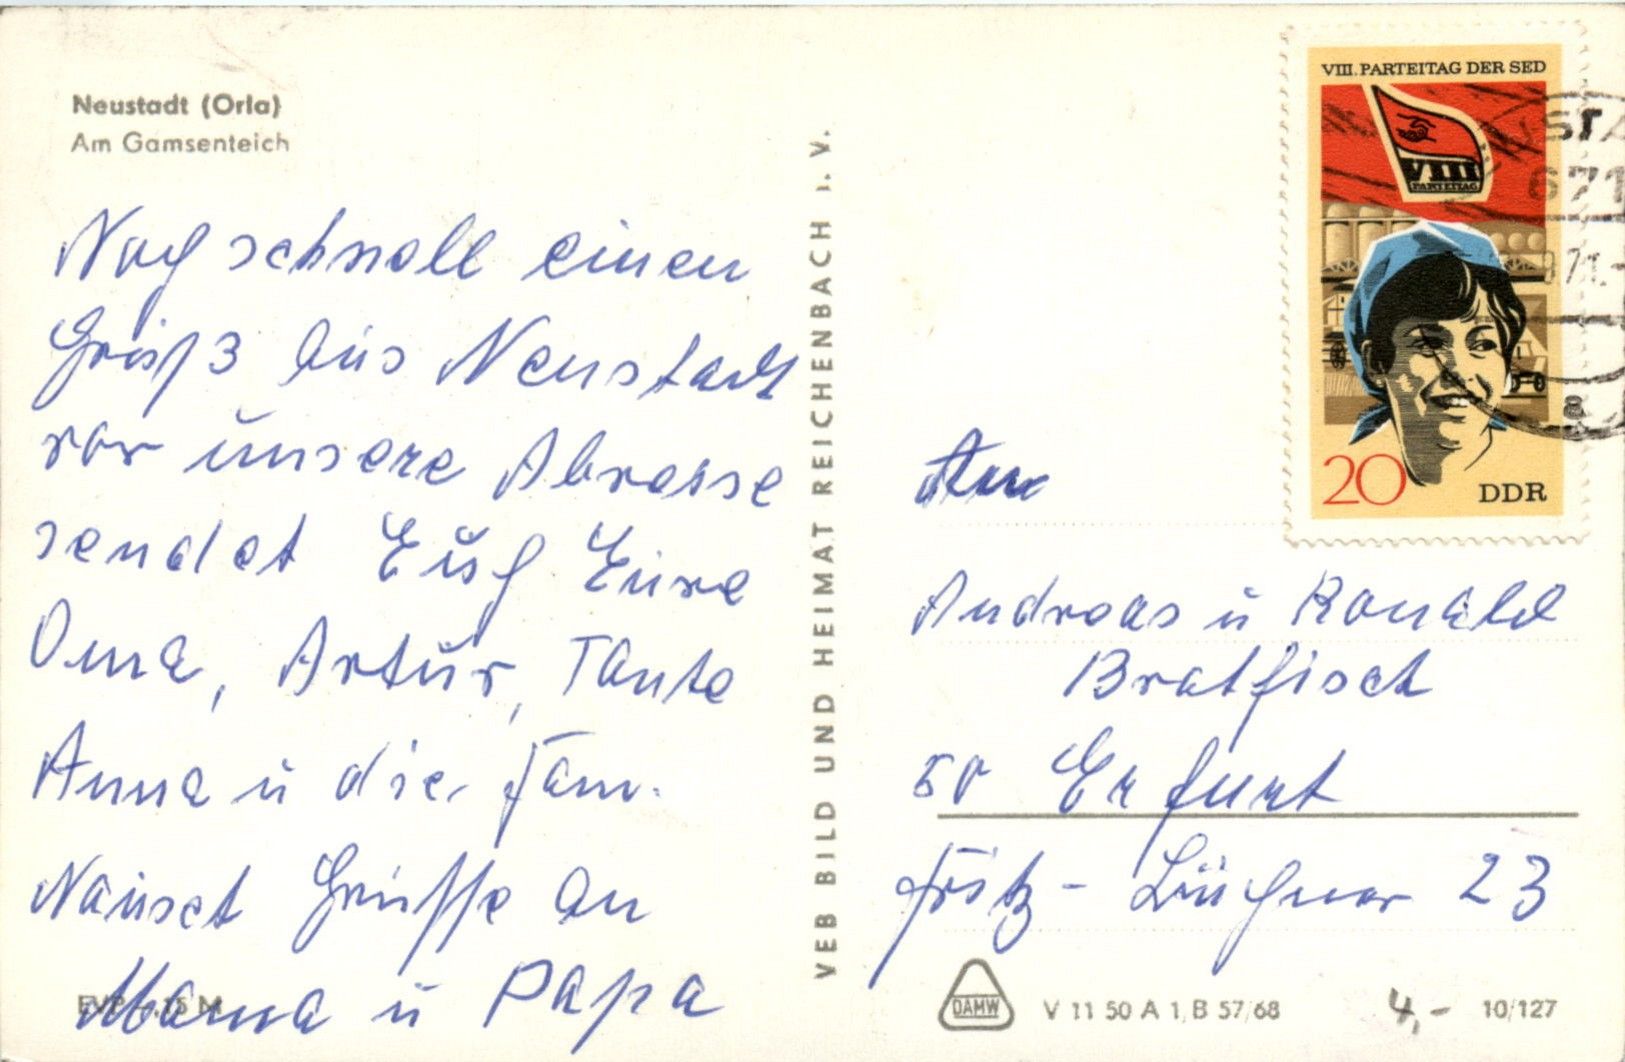 Neustadt (Orla)
Am Gamsenteich
Noch schnell einen
Gruß aus Neustadt
vor unsere Abresse
sendet Euch Eure
Oma, Artur, Tante
Anna u die Fam.
Grüsse an
Mama u Papa
EVP -,15 M
VEB BILD UND HEIMAT REICHENBACH i. V.
VIII. PARTEITAG DER SED
VIII
PARTEITAG
20 DDR
671
71.-
a
An
Andreas u Ronald
Bratfisch
50 Erfurt
Fritz- Büchner 23
DAMW
V 11 50 A 1, B 57/68
4,-
10/127